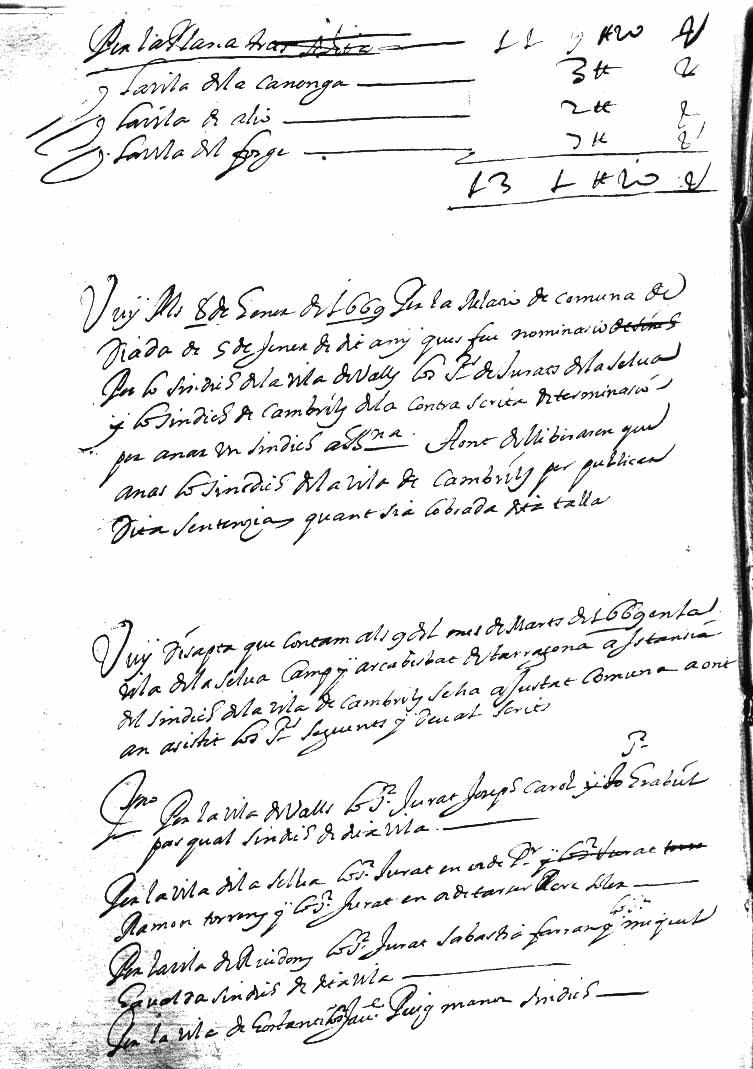 Per la Plana tras dita 11 9 ₶ 10 ₰
La vila de la Canonga 3 ₶ ₰
La vila de alio 2 ₶ ₰
La vila del forge 7 ₶ ₰
13 1 ₶ 10 ₰
Vuy als 8 de Gener de 1669 Per la Relacio de comuna de
Diada de 5 de Jener de dit any ques feu nominasio
Per lo sindich de la vila de Valls los Srs de Jurats de la selva
y lo sindich de Cambrils de la contra scrita determinasio
per anar un sindich a Bna Aont deliberaren que
anas lo sindich de la vila de Cambrils per publicar
Dita sentenzia quant sia cobrada dita talla
Vuy Disapta que contam als 9 del mes de Marts de 1669 en la
vila de la selva Camp y arcabisbat de tarragona a Jstansia
del sindich de la vila de Cambrils se ha ajustat Comuna aont
an asistit los Srs seguents y deval scrits
Sr
Pmo Per la vila de Valls lo Sr Jurat Joseph Carol y lo Grabiel
pasqual sindich de dita vila
Per la vila de la sellva lo Sr Jurat en orde Pr y lo Sr Jurat
Ramon torrens y lo Sr Jurat en orde tarser Pere soler
Per la vila de Riudoms lo Sr Jurat sabastia farran y miquel
Gavalda sindich de dita vila
Per la vila de Constanti Puig manor sindich